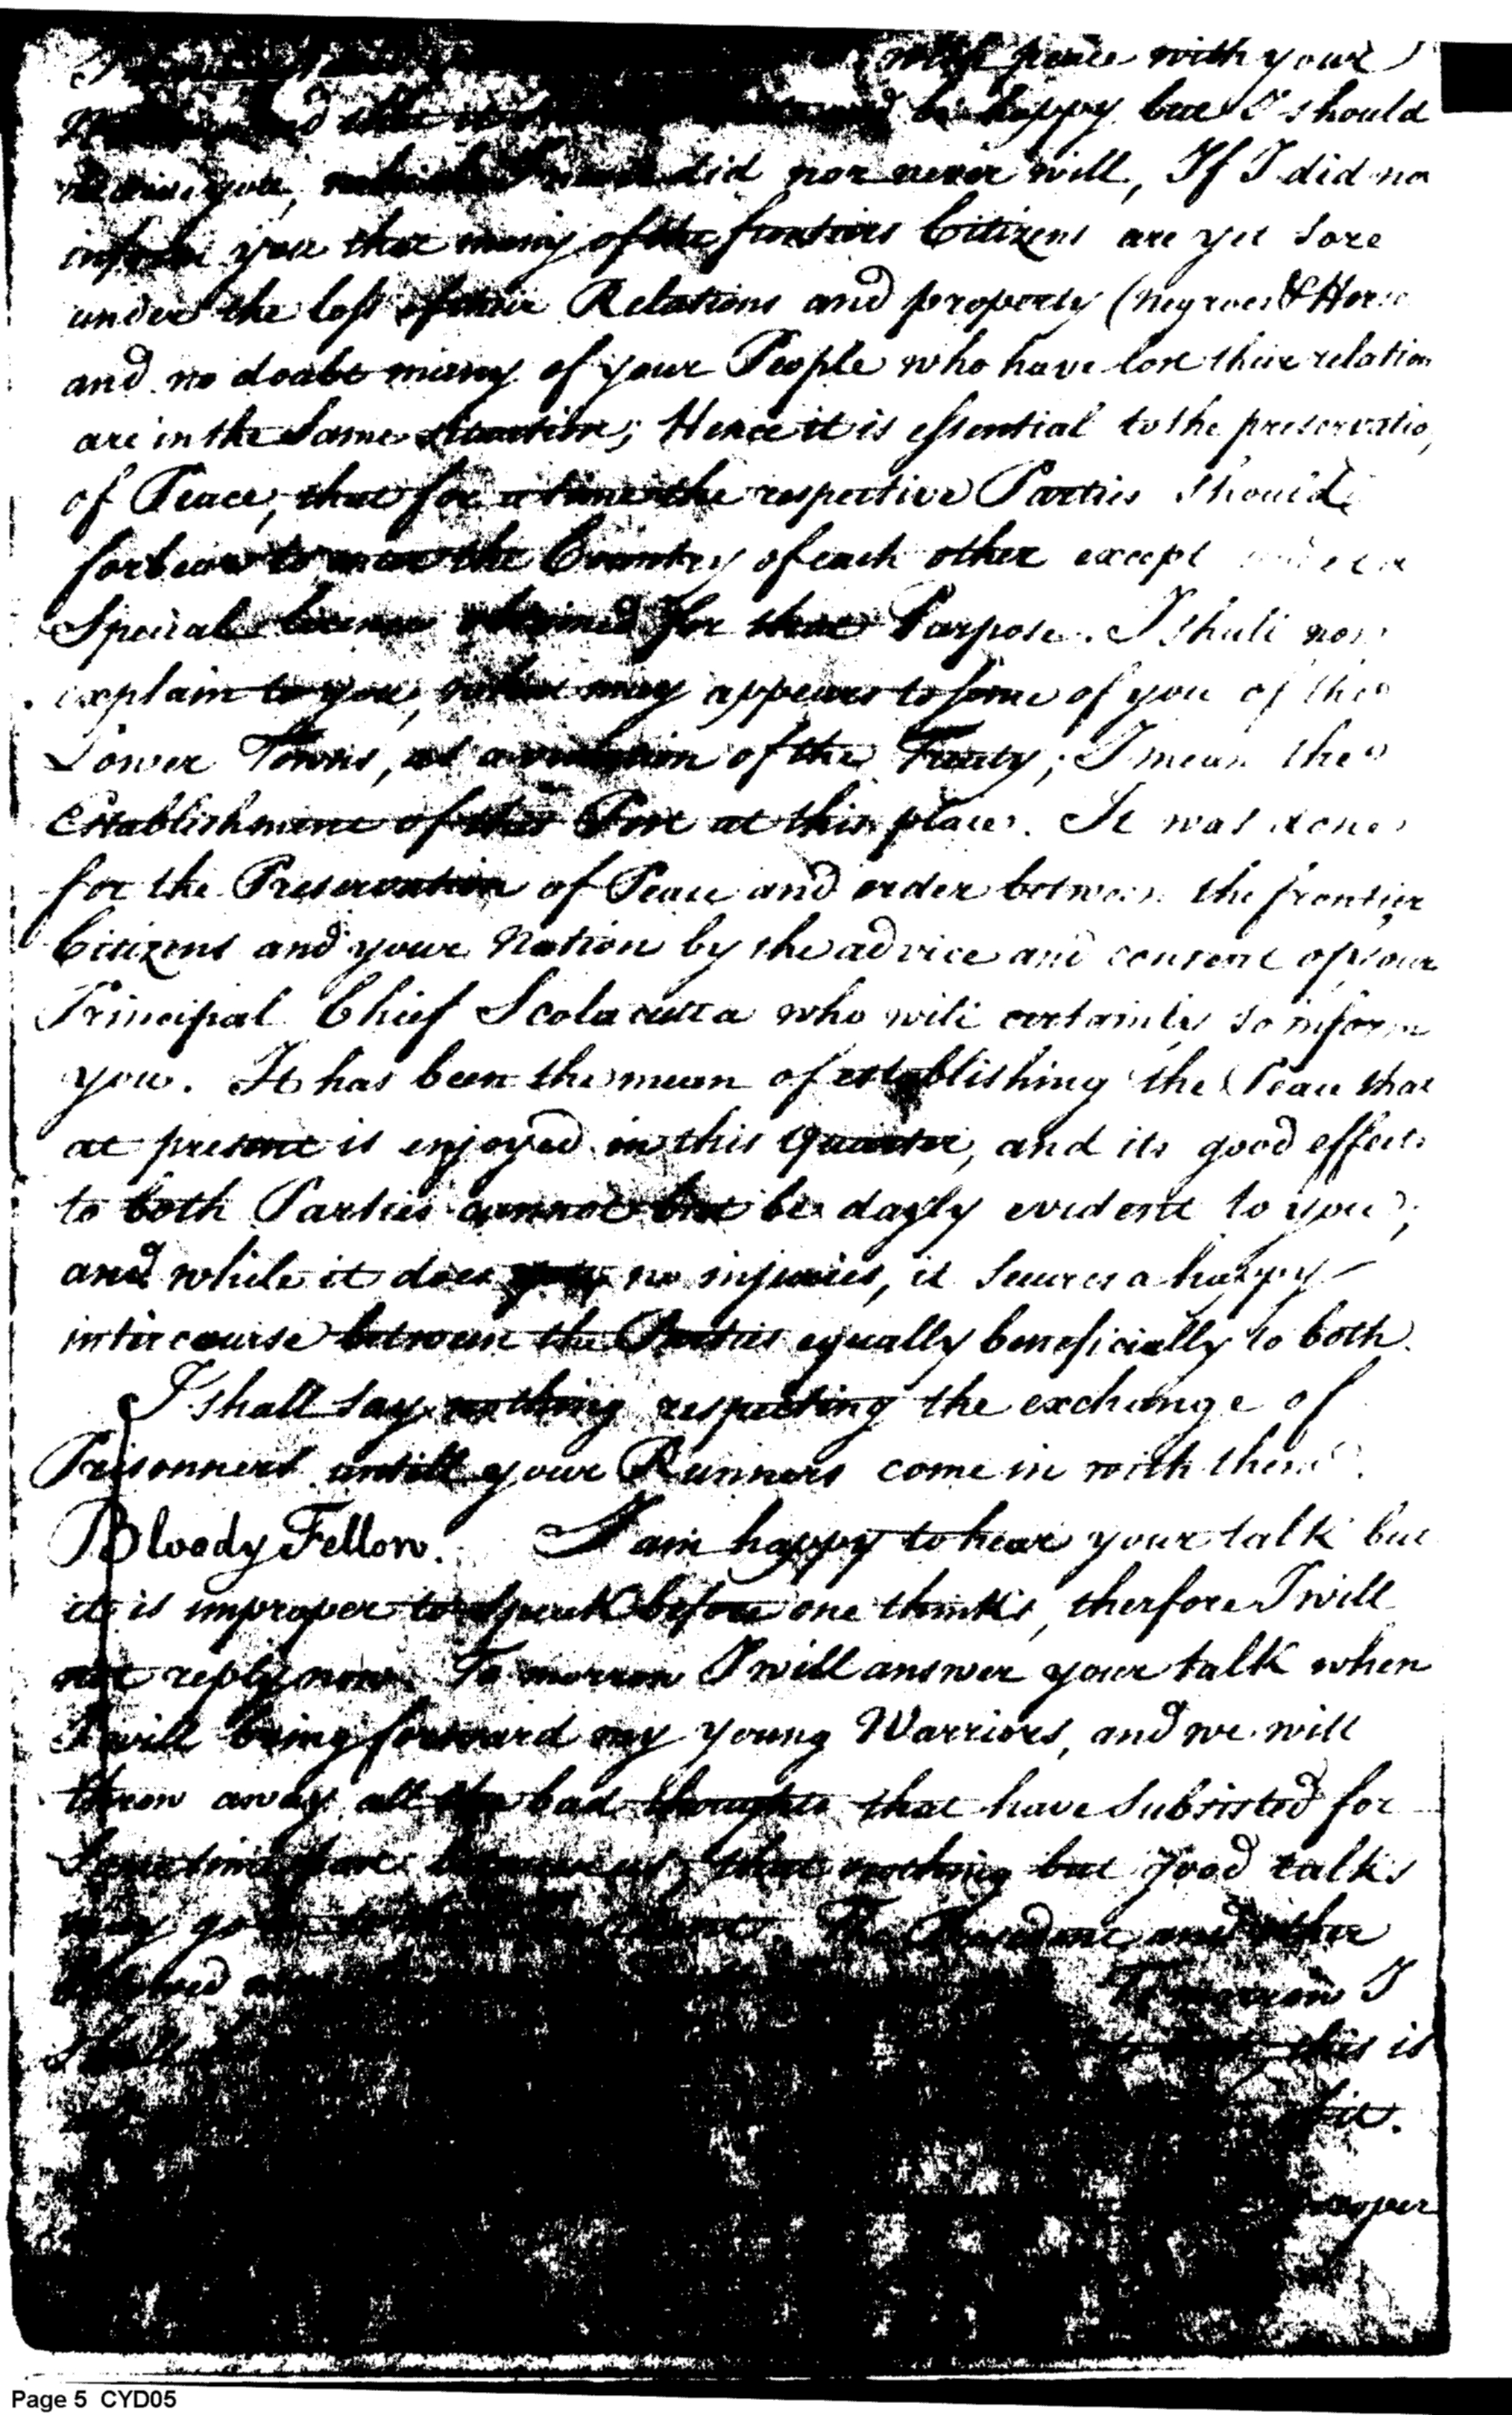 wish peace with your
be happy but I should
you, which I never did nor never will, If I did no
inform you that many of the frontiers Citizens are yet sore
under the loss of their Relations and property (negroes & Hors
and no doubt many of your People who have lost their relation
are in the same situation; Hence it is essential to the preservatio
of Peace, that for a time the respective Parties should
forbear to enter the Country of each other except under a
Special licence obtained for that Purpose. I shall now
explain to you, what may appear to some of you of the
Lower Towns, as a violation of the Treaty; I mean the
establishment of this Post at this place. It was done
for the Preservation of Peace and order between the frontier
Citizens and your Nation by the advice and consent of your
Principal Chief Scolacutta who will certainly so inform
you. It has been the mean of establishing the Peace that
at present is enjoyed in this Quarter, and its good effects
to both Parties cannot but be dayly evident to you;
and while it does you no injuries, it secures a happy
intercourse between the Parties equally beneficially to both.
I shall say nothing respecting the exchange of
Prisonners untill your Runners come in with them.
Bloody Fellow. I am happy to hear your talk but
it is improper to speak before one thinks, therfore I will
not reply now. To morrow I will answer your talk when
I will bring forward my young Warriors, and we will
throw away all the bad thoughts that have subsisted for
sometime past between us, that nothing but good talks
may go The President and other
Beloved Tomorrow I
Shall this is
Page 5 CYD05